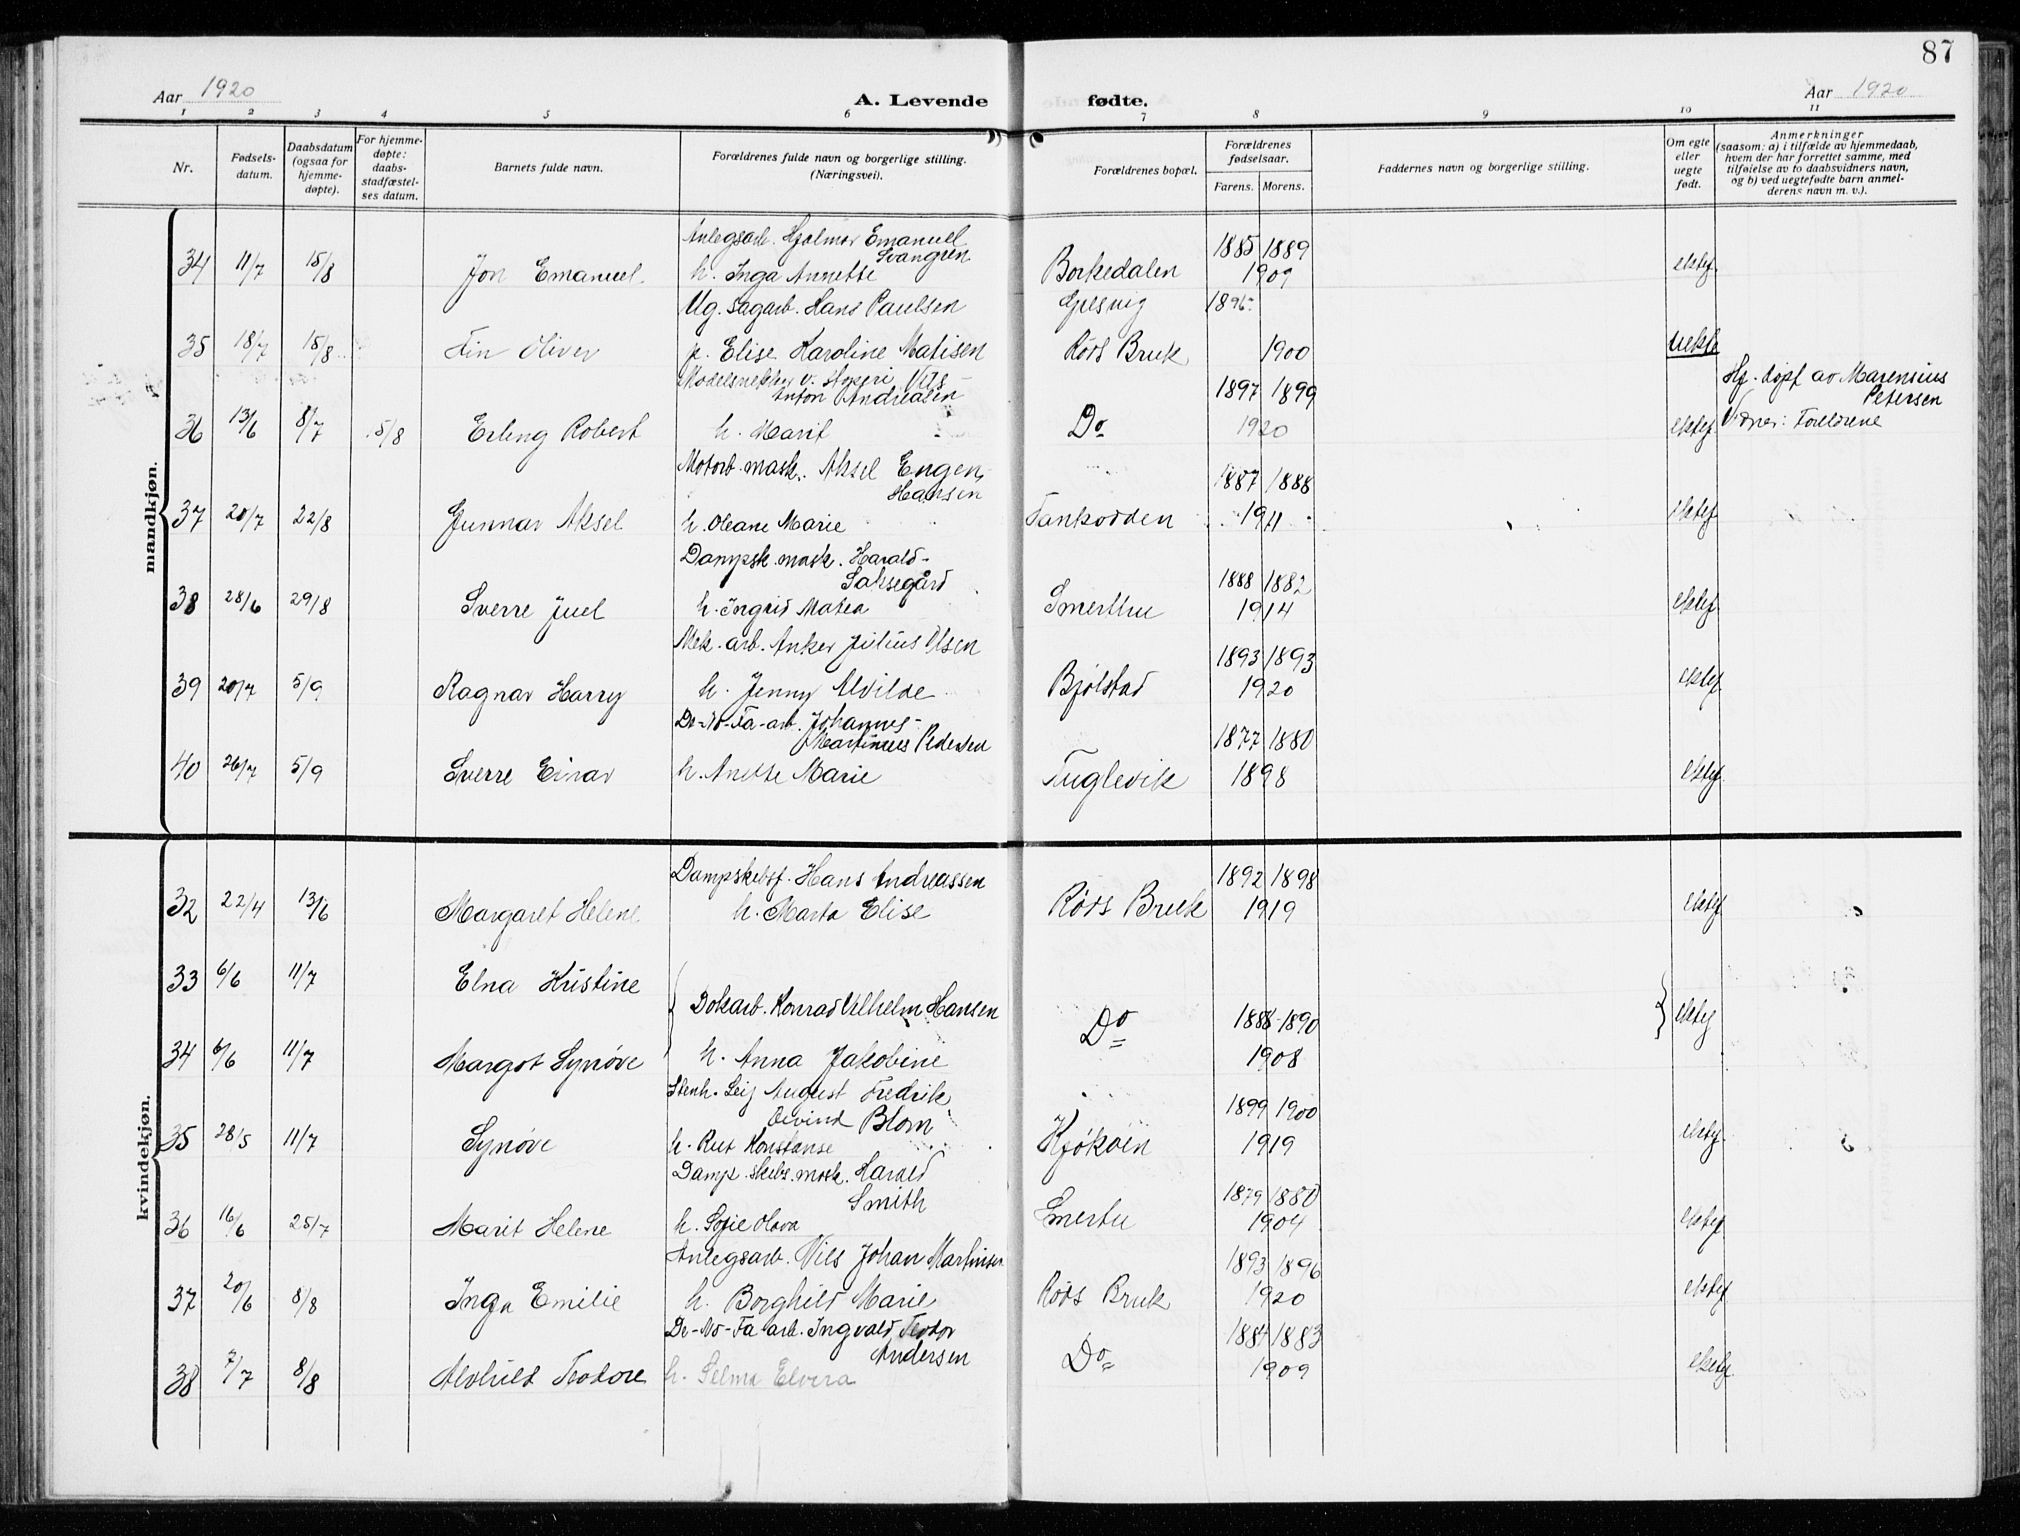 87
Aar 1920
A. Levende fødte.
Aar 1920
1 2 3 4 5 6 7 8 9 10 11
Nr.
Fødsels-
datum.
Daabsdatum
(ogsaa for
hjemme-
døpte).
For hjemme-
døpte:
daabs-
stadfæstel-
ses datum.
Barnets fulde navn.
Forældrenes fulde navn og borgerlige stilling.
(Næringsvei).
Forældrenes bopæl.
Forældrenes
fødselsaar.
Farens. Morens.
Faddernes navn og borgerlige stilling.
Om egte
eller
uegte
født.
Anmerkninger
(saasom: a) i tilfælde av hjemmedaab,
hvem der har forrettet samme, med
tilføielse av to daabsvidners navn,
og b) ved uegtefødte barn anmel-
derens navn m. v.).
mandkjøn.
Anlegsarb. Hjalmar Emanuel
Svangren
1885 1889
34 11/7 15/8 Jon Emanuel h. Inga Annette Borkedalen 1909 ektef
Ug. sagarb. Hans Paulsen 1896
35 18/7 15/8 Fin Oliver p. Elise Karoline Matisen Røds Bruk 1900 uekte
Modelsnekker v. støperi Nils
Anton Andreasen 1897 1899
Hj. døpt av Marensius
Petersen
36 13/6 8/7 5/8 Erling Robert h. Marit Do 1920 ektef Vidner: Foreldrene
Motorb. mask. Aksel Engen
Hansen 1887 1888
37 20/7 22/8 Gunnar Aksel h. Oleane Marie Tankodden 1911 ektef
Dampsk. mask. Harald
Saksegård 1888 1882
38 28/6 29/8 Sverre Juel h. Ingrid Matea Smerthu 1914 ektef
Mek. arb. Anker Julius Olsen 1893 1893
39 20/7 5/9 Ragnar Harry h. Jenny Alvilde Bjølstad 1920 ektef
De-No-Fa-arb. Johannes
Martinius Pedersen 1877 1880
40 26/7 5/9 Sverre Einar h. Anette Marie Fuglevik 1898 ektef
kvindekjøn.
Dampskibsf. Hans Andreassen 1892 1898
32 22/4 13/6 Margaret Helene h. Marta Elise Røds Bruk 1919 ektef
33 6/6 11/7 Elna Kristine
Dokarb. Konrad Vilhelm Hansen Do 1888 1890 ektef
34 6/6 11/7 Margot Synøve h. Anna Jakobine 1908
Stenh. Leif August Fredrik
Øivind Blom 1899 1900
35 28/5 11/7 Synøve h. Rut Konstanse Kjøkøen 1919 ektef
Damp. skibs. mask. Harald
Smith 1879 1880
36 16/6 25/7 Marit Helene h. Sofie Olava Smertu 1904 ektef
Anlegsarb. Nils Johan Martinsen 1893 1896
37 20/6 8/8 Inga Emilie h. Borghild Marie Røds Bruk 1920 ektef
De-No-Fa arb. Ingvald Teodor
Andersen 1884 1883
38 7/7 8/8 Alvhild Teodore h. Selma Elvera Do 1909 ektef